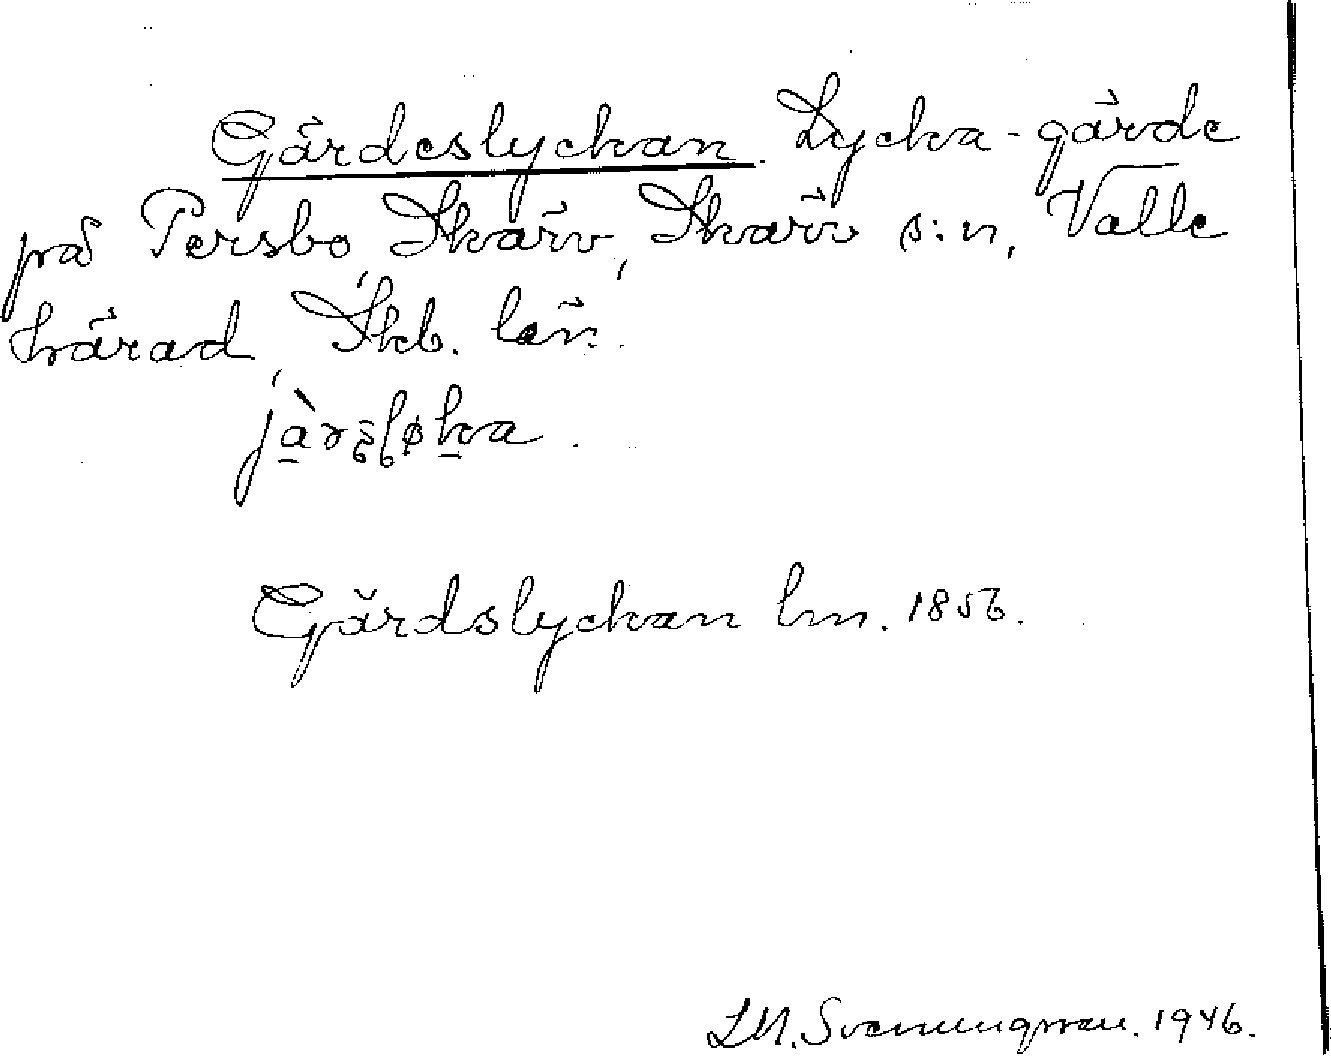 Gärdeslyckan. Lycka-gärde
på Persbo, Skärv, Skärv s:n, Valle
härad, Skb. län.
Gärdslyckan lm. 1856.
L.M. Svenungsson. 1946.